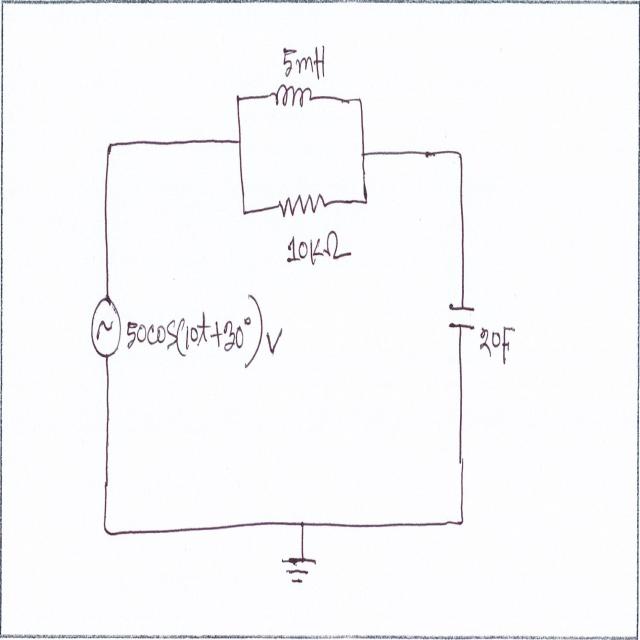 5mH
10KΩ
50cos(10t+30°)V
20F